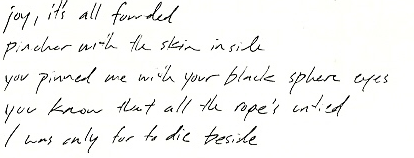 joy, it's all founded
pincher with the skin inside
you pinned me with your black sphere eyes
you know that all the rope's untied
I was only for to die beside